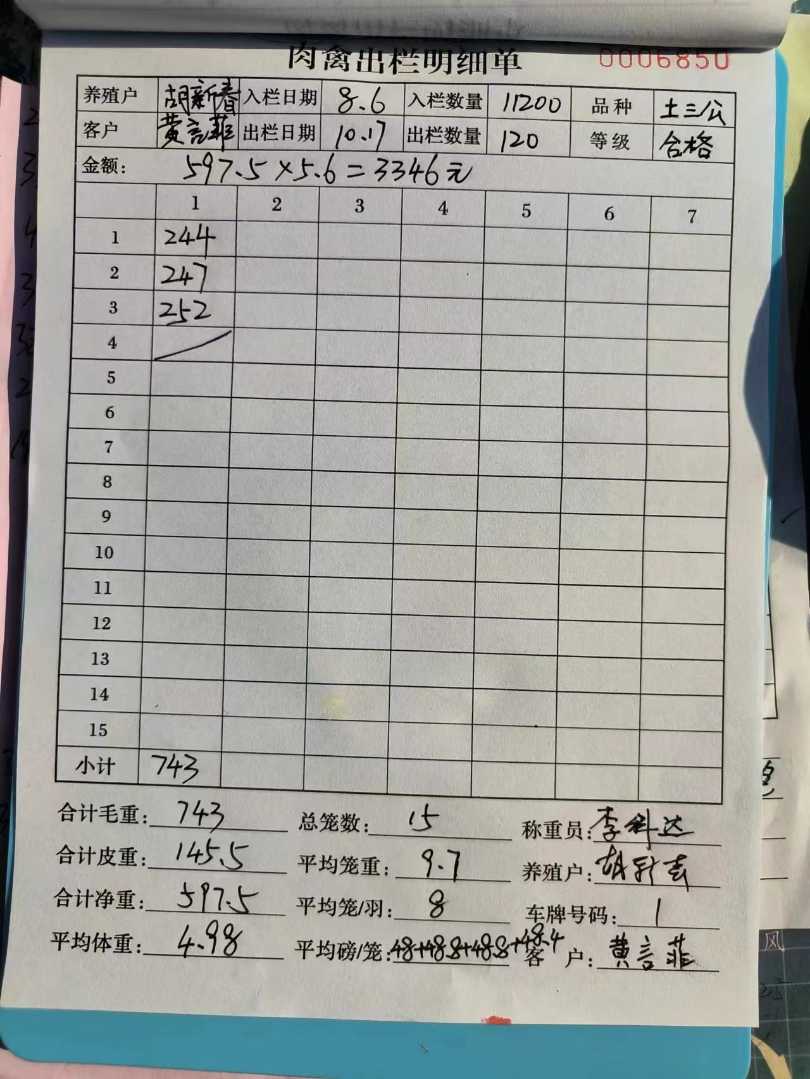 肉禽出栏明细单 0006850
养殖户 胡新春 入栏日期 8.6 入栏数量 11200 品种 土三公
客户 黄言菲 出栏日期 10.17 出栏数量 120 等级 合格
金额: 597.5×5.6=3346元
1 2 3 4 5 6 7
1 244
2 247
3 252
4
5
6
7
8
9
10
11
12
13
14
15
小计 743
合计毛重: 743 总笼数: 15 称重员: 李科达
合计皮重: 145.5 平均笼重: 9.7 养殖户: 胡新春
合计净重: 597.5 平均笼/羽: 8 车牌号码: 1
平均体重: 4.98 平均磅/笼: 48+48.8+48.8+48.4 客户: 黄言菲
风